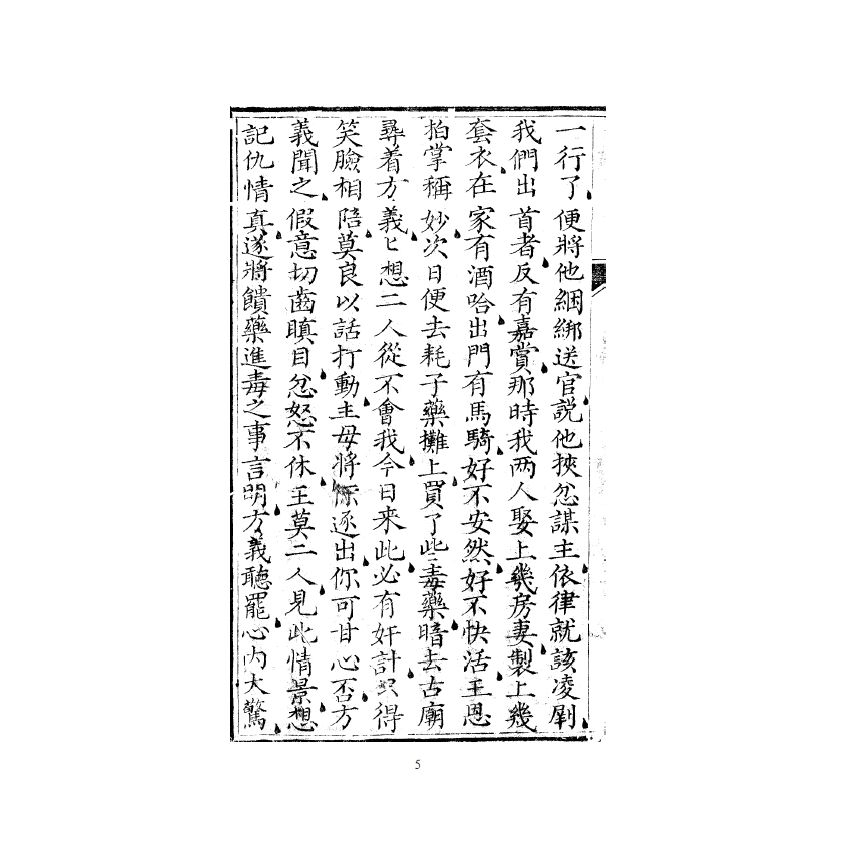 一行了便將他綑綁送官説他挾忿謀主依律就該凌剮
我們出首者反有嘉賞那時我两人娶上幾房妻製上幾
套衣在家有酒哈出門有馬騎好不安然好不快活王恩
拍掌稱妙次日便去耗子藥攤上買了些毒藥暗去古廟
尋着方義匕想二人從不會我今日来此必有奸計只得
笑臉相陪莫良以話打動主母將你逐出你可甘心否方
義聞之假意切齒瞋目忿怒不休王莫二人見此情景想
記仇情真遂將饋藥進毒之事言明方義聽罷心内大驚
5